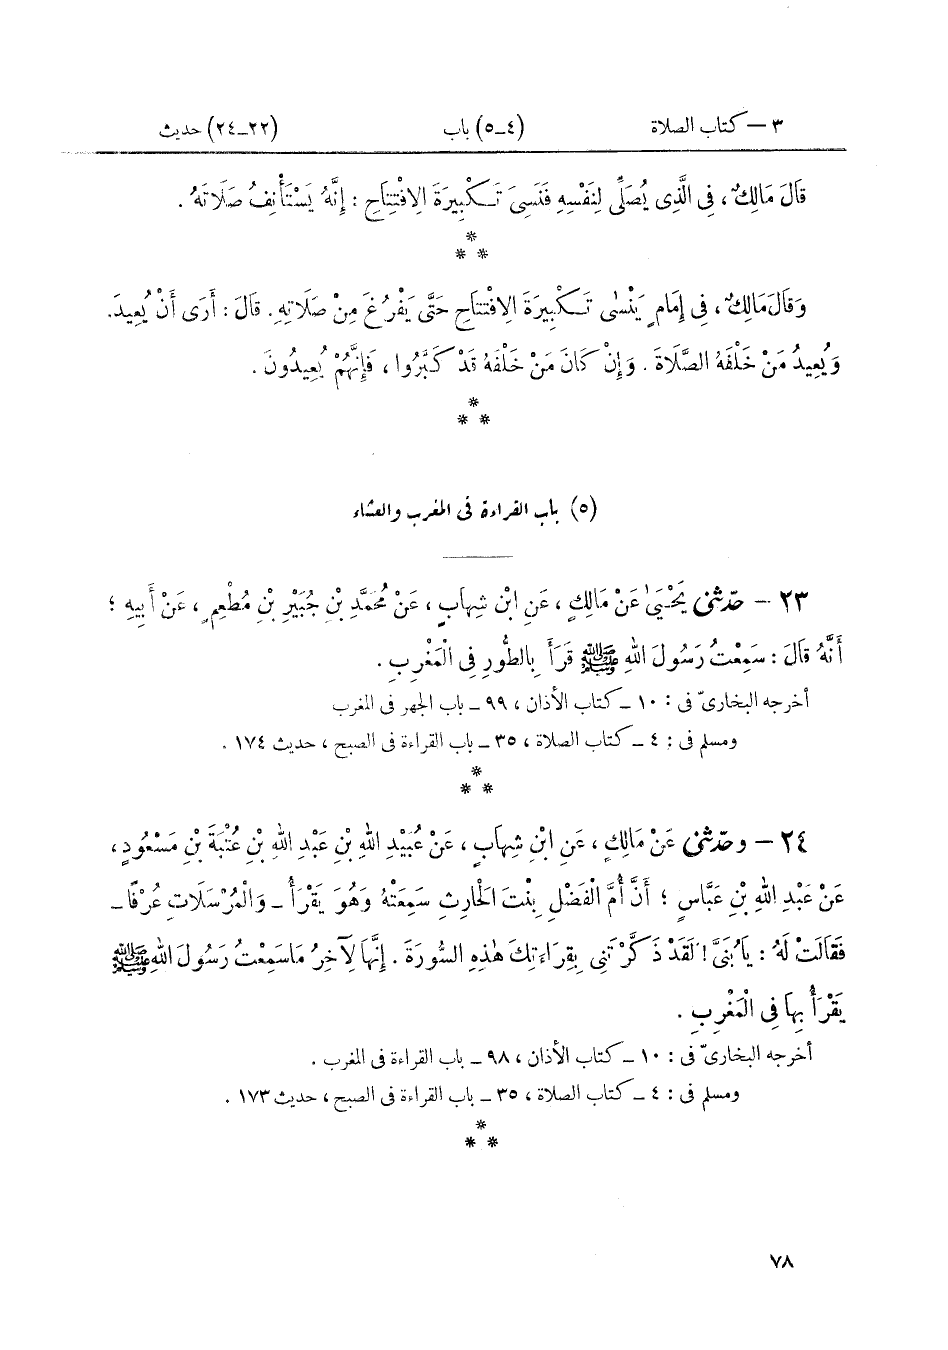 ٣ — كتاب الصلاة (٤-٥) باب (٢٢-٢٤) حديث
قَالَ مَالِكٌ ، فِى الَّذِى يُصَلِّى لِنَفْسِهِ فَنَسِىَ تَكْبِيرَةَ الِافْتِتَاحِ : إِنَّهُ يَسْتَأْنِفُ صَلَاتَهُ .
*
* *
وَقَالَ مَالِكٌ ، فِى إِمَامٍ يَنْسٰى تَكْبِيرَةَ الِافْتِتَاحِ حَتَّى يَفْرُغَ مِنْ صَلَاتِهِ . قَالَ : أَرَى أَنْ يُعِيدَ .
وَيُعِيدُ مَنْ خَلْفَهُ الصَّلَاةَ . وَإِنْ كَانَ مَنْ خَلْفَهُ قَدْ كَبَّرُوا ، فَإِنَّهُمْ يُعِيدُونَ .
*
* *
(٥) باب القراءة فى المغرب والعشاء
٢٣ - حدّثنى يَحْيَىٰ عَنْ مَالِكٍ ، عَنِ ابْنِ شِهابٍ ، عَنْ مُحَمَّدِ بْنِ جُبَيْرِ بْنِ مُطْعِمٍ ، عَنْ أَبِيهِ ؛
أَنَّهُ قَالَ : سَمِعْتُ رَسُولَ اللهِ ﷺ قَرَأَ بِالطُّورِ فِى الْمَغْرِبِ .
أخرجه البخارىّ فى : ١٠ ـ كتاب الأذان ، ٩٩ ـ باب الجهر فى المغرب
ومسلم فى : ٤ ـ كتاب الصلاة ، ٣٥ ـ باب القراءة فى الصبح ، حديث ١٧٤ .
*
* *
٢٤ - وحدّثنى عَنْ مَالِكٍ ، عَنِ ابْنِ شِهابٍ ، عَنْ عُبَيْدِ اللهِ بْنِ عَبْدِ اللهِ بْنِ عُتْبَةَ بْنِ مَسْعُودٍ ،
عَنْ عَبْدِ اللهِ بْنِ عَبَّاسٍ ؛ أَنَّ أُمَّ الْفَضْلِ بِنْتَ الْحَارِثِ سَمِعَتْهُ وَهُوَ يَقْرَأُ ـ وَالْمُرْسَلَاتِ عُرْفًا ـ
فَقَالَتْ لَهُ : يَا بُنَىَّ ! لَقَدْ ذَكَّرْتَنِى بِقِرَاءَتِكَ هٰذِهِ السُّورَةَ . إِنَّهَا لَآخِرُ مَا سَمِعْتُ رَسُولَ اللهِ ﷺ
يَقْرَأُ بِهَا فِى الْمَغْرِبِ .
أخرجه البخارىّ فى : ١٠ ـ كتاب الأذان ، ٩٨ ـ باب القراءة فى المغرب .
ومسلم فى : ٤ ـ كتاب الصلاة ، ٣٥ ـ باب القراءة فى الصبح ، حديث ١٧٣ .
*
* *
٧٨